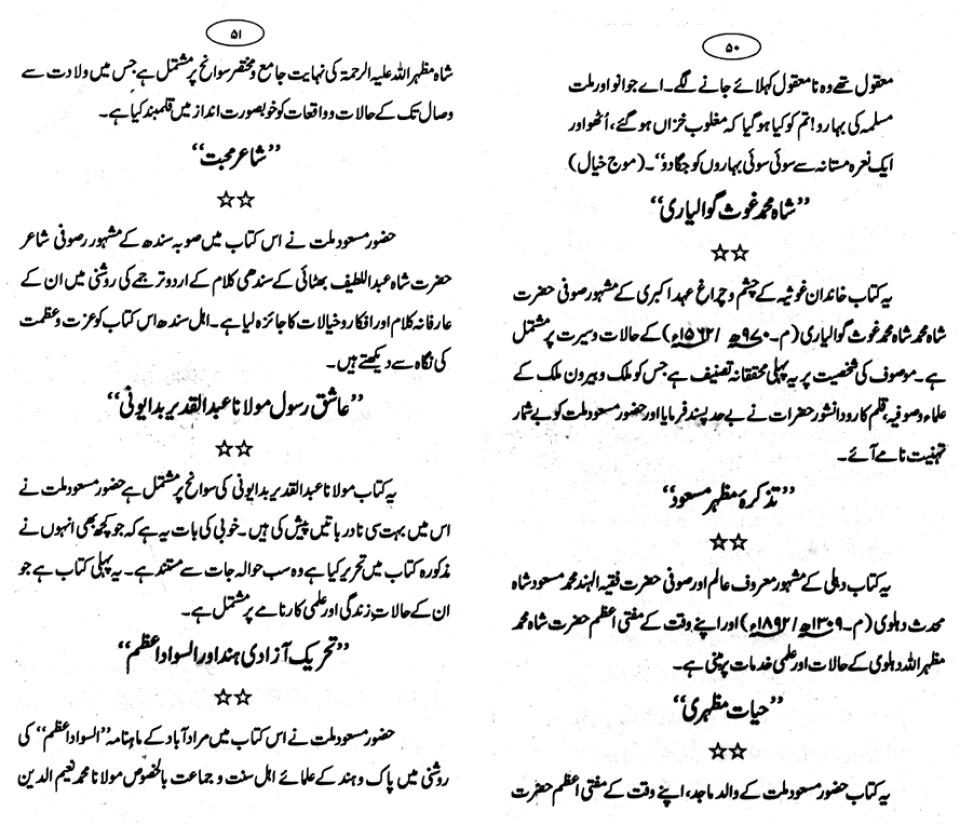 ۵۰
معقول تھے وہ نا معقول کہلائے جانے لگے۔ اے جوانو اور ملت
مسلمہ کی بہارو! تم کو کیا ہو گیا کہ مغلوب خزاں ہو گئے، اُٹھو اور
ایک نعرہ مستانہ سے سوئی سوئی بہاروں کو جگا دو‘‘۔ (موج خیال)
’’شاہ محمد غوث گوالیاری‘‘
☆☆
یہ کتاب خاندان غوثیہ کے چشم و چراغ عہد اکبری کے مشہور صوفی حضرت
شاہ محمد شاہ محمد غوث گوالیاری (م۔۹۷۰ھ / ۱۵۶۲ء) کے حالات و سیرت پر مشتمل
ہے۔ موصوف کی شخصیت پر یہ پہلی محققانہ تصنیف ہے جس کو ملک و بیرون ملک کے
علماء و صوفیہ، قلم کار و دانشور حضرات نے بے حد پسند فرمایا اور حضور مسعود ملت کو بے شمار
تہنیت نامے آئے۔
’’تذکرۂ مظہر مسعود‘‘
☆☆
یہ کتاب دہلی کے مشہور معروف عالم اور صوفی حضرت فقیہ الہند محمد مسعود شاہ
محدث دہلوی (م۔۱۳۰۹ھ/ ۱۸۹۲ء) اور اپنے وقت کے مفتی اعظم حضرت شاہ محمد
مظہر اللہ دہلوی کے حالات اور علمی خدمات پر مبنی ہے۔
’’حیات مظہری‘‘
☆☆
یہ کتاب حضور مسعود ملت کے والد ماجد، اپنے وقت کے مفتی اعظم حضرت
۵۱
شاہ مظہر اللہ علیہ الرحمۃ کی نہایت جامع و مختصر سوانح پر مشتمل ہے جس میں ولادت سے
وصال تک کے حالات و واقعات کو خوبصورت انداز میں قلمبند کیا ہے۔
’’شاعر محبت‘‘
☆☆
حضور مسعود ملت نے اس کتاب میں صوبہ سندھ کے مشہور صوفی شاعر
حضرت شاہ عبد اللطیف بھٹائی کے سندھی کلام کے اردو ترجمے کی روشنی میں ان کے
عارفانہ کلام اور افکار و خیالات کا جائزہ لیا ہے۔ اہل سندھ اس کتاب کو عزت و عظمت
کی نگاہ سے دیکھتے ہیں۔
’’عاشق رسول مولانا عبد القدیر بدایونی‘‘
☆☆
یہ کتاب مولانا عبد القدیر بدایونی کی سوانح پر مشتمل ہے حضور مسعود ملت نے
اس میں بہت سی نادر باتیں پیش کی ہیں۔ خوبی کی بات یہ ہے کہ جو کچھ بھی انہوں نے
مذکورہ کتاب میں تحریر کیا ہے وہ سب حوالہ جات سے مستند ہے۔ یہ پہلی کتاب ہے جو
ان کے حالاتِ زندگی اور علمی کارنامے پر مشتمل ہے۔
’’تحریک آزادی ہند اور السواد اعظم‘‘
☆☆
حضور مسعود ملت نے اس کتاب میں مراد آباد کے ماہنامہ ’’السواد اعظم‘‘ کی
روشنی میں پاک و ہند کے علمائے اہل سنت و جماعت بالخصوص مولانا محمد نعیم الدین